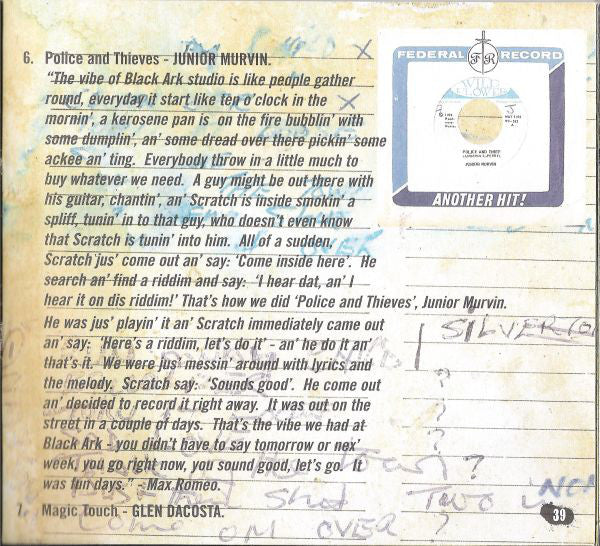 6. Police and Thieves - JUNIOR MURVIN.
"The vibe of Black Ark studio is like people gather
round, everyday it start like ten o'clock in the
mornin', a kerosene pan is on the fire bubblin' with
some dumplin', an' some dread over there pickin' some
ackee an' ting. Everybody throw in a little much to
buy whatever we need. A guy might be out there with
his guitar, chantin', an' Scratch is inside smokin' a
spliff, tunin' in to that guy, who doesn't even know
that Scratch is tunin' into him. All of a sudden,
Scratch jus' come out an' say: 'Come inside here'. He
search an' find a riddim and say: 'I hear dat, an' I
hear it on dis riddim!' That's how we did 'Police and Thieves', Junior Murvin.
He was jus' playin' it an' Scratch immediately came out
an' say: 'Here's a riddim, let's do it' - an' he do it an'
that's it. We were jus' messin' around with lyrics and
the melody. Scratch say: 'Sounds good'. He come out
an' decided to record it right away. It was out on the
street in a couple of days. That's the vibe we had at
Black Ark - you didn't have to say tomorrow or nex'
week, you go right now, you sound good, let's go. It
was fun days." - Max Romeo.
7. Magic Touch - GLEN DACOSTA.
FEDERAL RECORD
FR
WILD FLOWER
POLICE AND THIEF
JUNIOR MURVIN
ANOTHER HIT!
X
X
OVER
SILVER
?
?
?
?
?
shot TWO
COME ON OVER ?
39